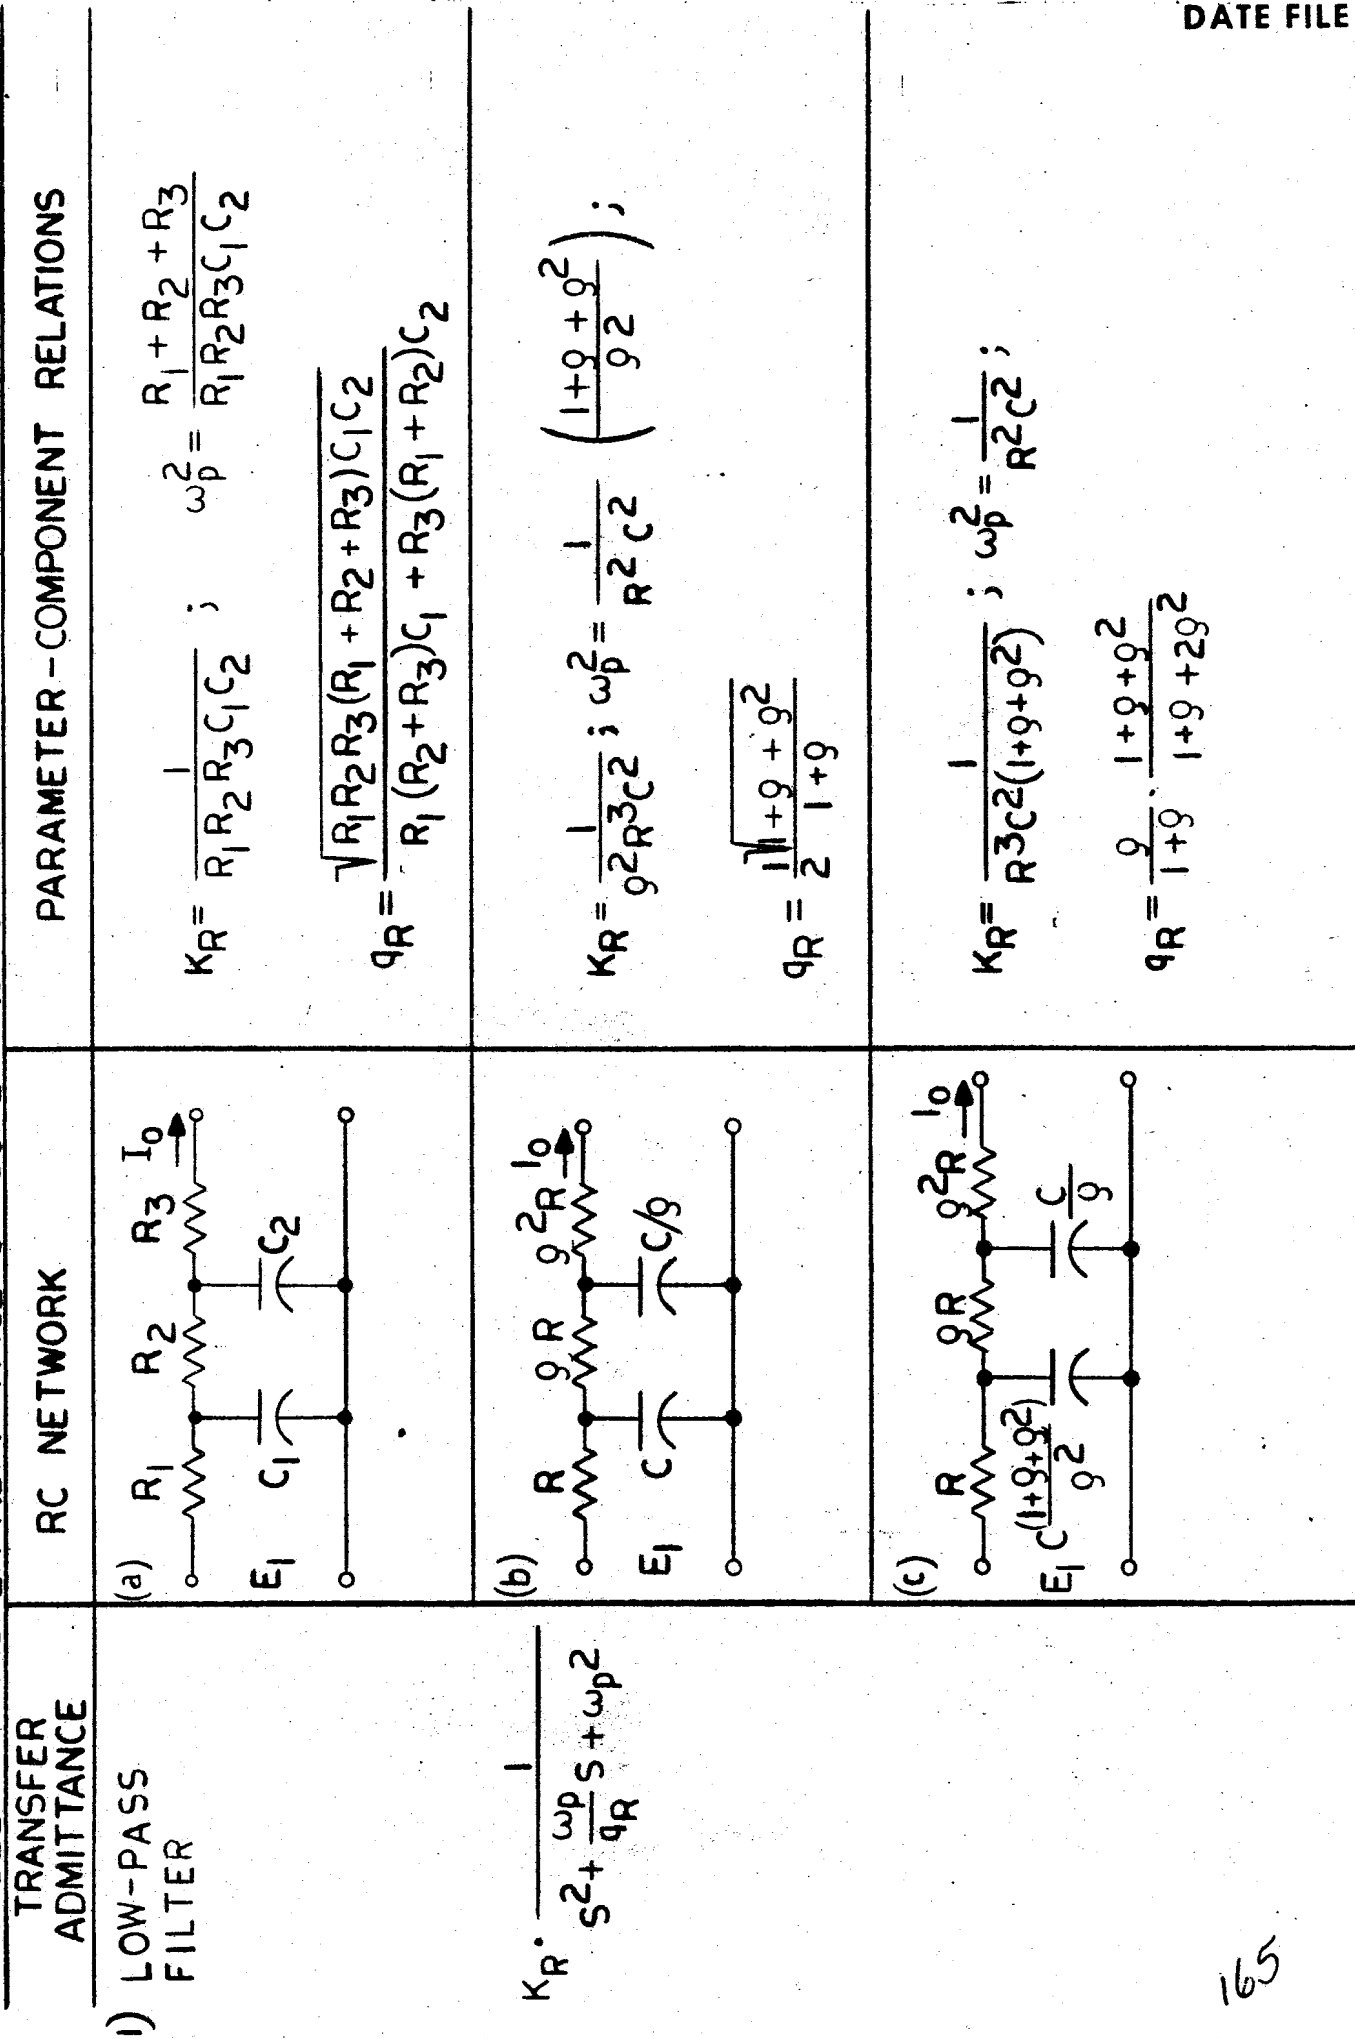 DATE FILE
TRANSFER ADMITTANCE
RC NETWORK
PARAMETER-COMPONENT RELATIONS
1) LOW-PASS FILTER
K_R · 1 / (S^2 + (ω_p/q_R) S + ω_p^2)
(a)
R_1 R_2 R_3 I_0
E_1 C_1 C_2
K_R = 1 / (R_1 R_2 R_3 C_1 C_2) ; ω_p^2 = (R_1 + R_2 + R_3) / (R_1 R_2 R_3 C_1 C_2)
q_R = √(R_1 R_2 R_3 (R_1 + R_2 + R_3) C_1 C_2) / (R_1 (R_2 + R_3) C_1 + R_3 (R_1 + R_2) C_2)
(b)
R ρR ρ^2R I_0
E_1 C C/ρ
K_R = 1 / (ρ^2 R^3 C^2) ; ω_p^2 = 1 / (R^2 C^2) ((1+ρ+ρ^2) / ρ^2) ;
q_R = 1/2 √(1+ρ+ρ^2) / (1+ρ)
(c)
R ρR ρ^2R I_0
E_1 C (1+ρ+ρ^2)/ρ^2 C/ρ
K_R = 1 / (R^3 C^2 (1+ρ+ρ^2)) ; ω_p^2 = 1 / (R^2 C^2) ;
q_R = ρ/(1+ρ) · (1+ρ+ρ^2) / (1+ρ+2ρ^2)
165